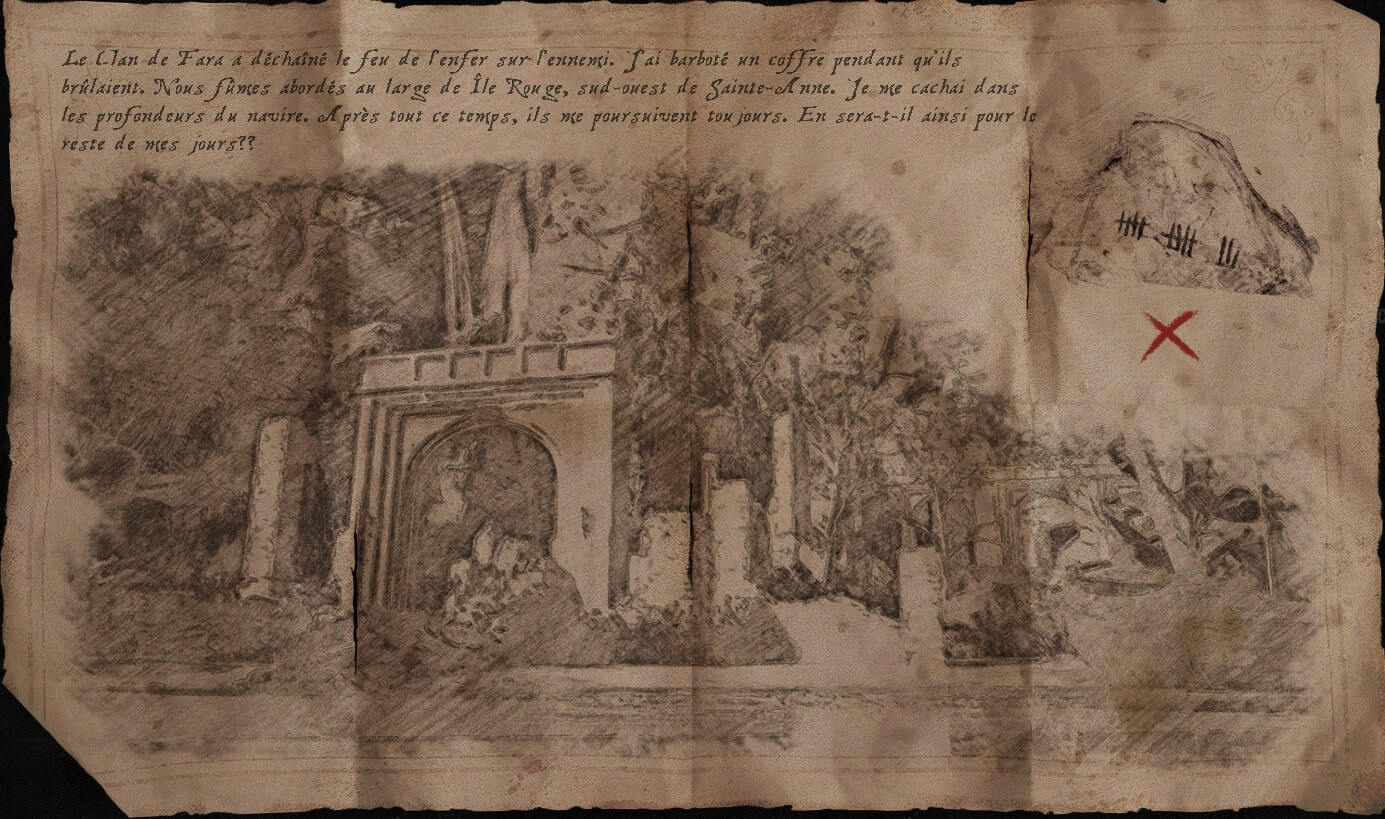 Le Clan de Fara a déchaîné le feu de l'enfer sur l'ennemi. J'ai barboté un coffre pendant qu'ils
brûlaient. Nous fûmes abordés au large de Île Rouge, sud-ouest de Sainte-Anne. Je me cachai dans
les profondeurs du navire. Après tout ce temps, ils me poursuivent toujours. En sera-t-il ainsi pour le
reste de mes jours??